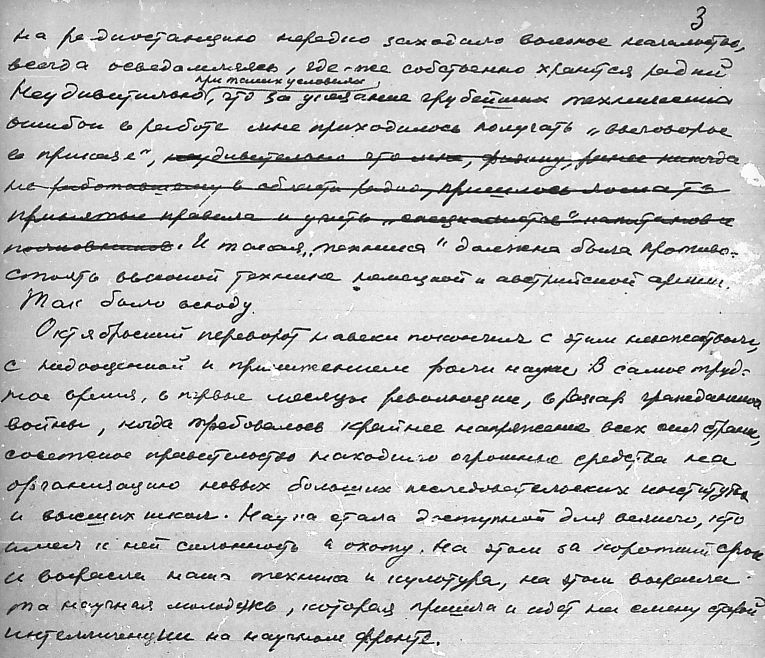 3
на радиостанцию нередко заходило военное начальство,
всегда осведомляясь, где-же собственно хранится радий
при таких условиях
Неудивительно, что за указание грубейших технических
ошибок в работе мне приходилось получать „выговоры
в приказе", неудивительно что мне, физику, ранее никогда
не работавшему в области радио, пришлось ломать
принятые правила и учить „специалистов" капитанов и
полковников. И такая „техника" должна была противо-
стоять высокой технике немецкой и австрийской армии.
Так было всюду.
Октябрьский переворот навеки покончил с этим невежеством,
с недооценкой и принижением роли науки. В самое труд-
ное время, в первые месяцы революции, в разгар гражданской
войны, когда требовалось крайнее напряжение всех сил страны,
советское правительство находило огромные средства на
организацию новых больших исследовательских институтов
и высших школ. Наука стала доступной для всякого, кто
имел к ней склонность и охоту. На этом за короткий срок
и выросла наша техника и культура, на этом выросла
та научная молодежь, которая пришла и идет на смену старой
интеллигенции на научном фронте.